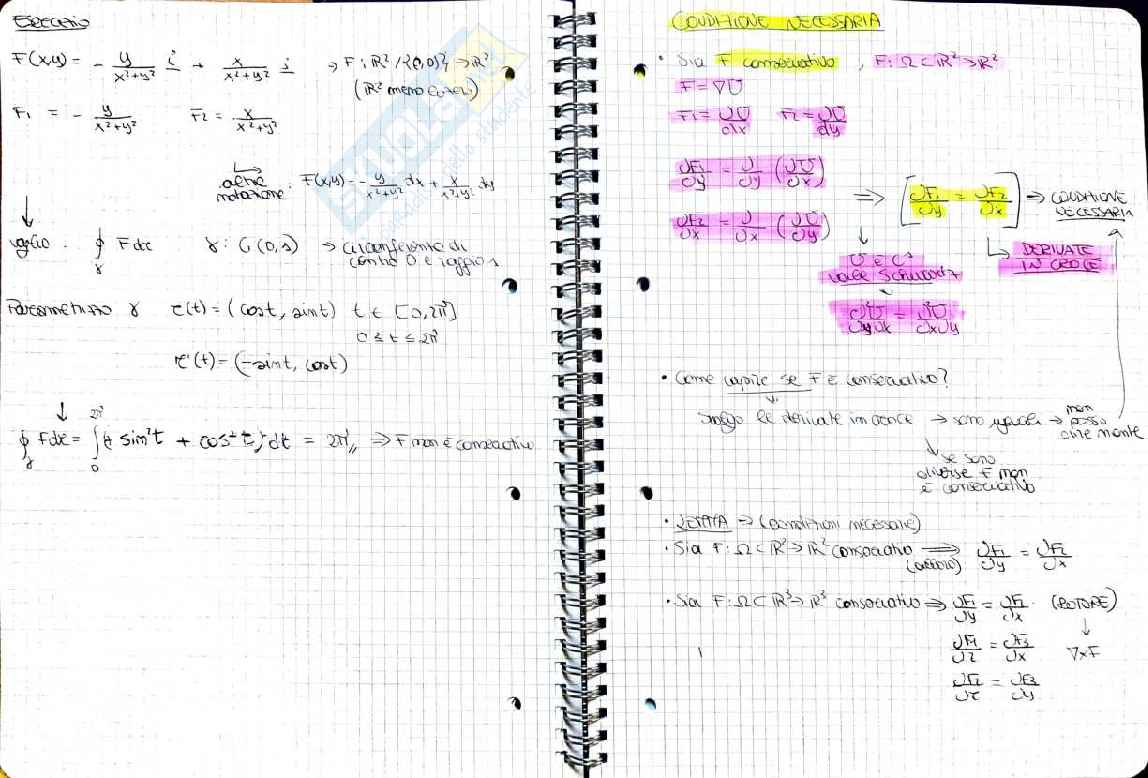 Esercizio
F(x,y) = - y/(x²+y²) i + x/(x²+y²) j → F: ℝ² / {0,0}, → ℝ²
(ℝ² meno
F₁ = - y/(x²+y²) F₂ = x/(x²+y²)
↳ altra notazione: F(x,y) = - y/(x²+y²) dx + x/(x²+y²) dy
voglio ∮γ F dr γ: C(0,1) → circonferenza di
centro 0 e raggio 1
Parametrizzo γ r(t) = (cost, sint) t ∈ [0,2π]
0 ≤ t ≤ 2π
r'(t) = (-sint, cost)
↓
∮γ F dr = ∫₀^2π (+ sin²t + cos²t) dt = 2π ⇒ F non è conservativo
CONDIZIONE NECESSARIA
• Sia F conservativo, F: Ω ⊂ ℝ² → ℝ²
F = ∇U
F₁ = ∂U/∂x F₂ = ∂U/∂y
∂F₁/∂y = ∂/∂y (∂U/∂x)
⇒ [∂F₁/∂y = ∂F₂/∂x] → CONDIZIONE NECESSARIA
∂F₂/∂x = ∂/∂x (∂U/∂y)
↳ DERIVATE IN CROCE
↓
U è C²
vale Schwartz
∂²U/∂y∂x = ∂²U/∂x∂y
• Come capire se F è conservativo?
svolgo le derivate in croce → sono uguali → non posso dire niente
↓
se sono
diverse F non
è conservativo
• LEMMA → (condizioni necessarie)
• Sia F: Ω ⊂ ℝ² → ℝ² conservativo ⇒ ∂F₁/∂y = ∂F₂/∂x
(allora)
• Sia F: Ω ⊂ ℝ³ → ℝ³ conservativo ⇒ ∂F₁/∂y = ∂F₂/∂x (ROTORE)
↓
∂F₁/∂z = ∂F₃/∂x ∇×F
∂F₂/∂z = ∂F₃/∂y